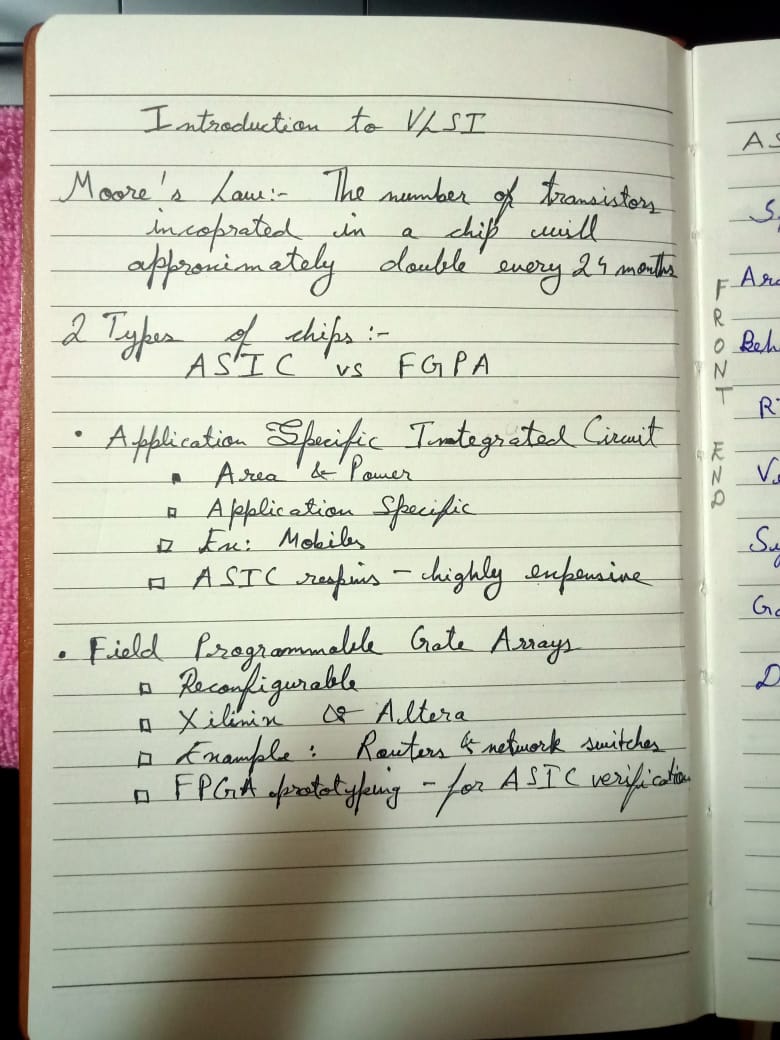 Introduction to VLSI
Moore's Law:- The number of transistors
incoprated in a chip will
approximately double every 24 months
2 Types of chips :-
ASIC vs FGPA
• Application Specific Integrated Circuit
▪ Area & Power
▫ Application Specific
▫ Ex: Mobiles
▫ ASIC respins - highly expensive
• Field Programmable Gate Arrays
▫ Reconfigurable
▫ Xilinix & Altera
▫ Example : Routers & network switches
▫ FPGA prototyping - for ASIC verification
FRONT END
AS
Arc
Beh